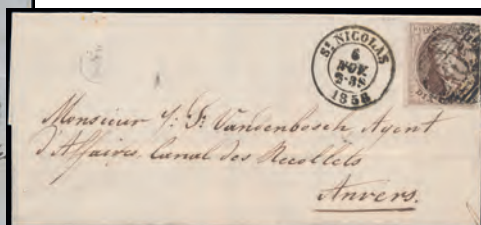 St NICOLAS
6
NOV.
2-3S
1858
Monsieur J: Dr Vandenbosch, Agent
d'Affaires Canal des Recollets
Anvers.